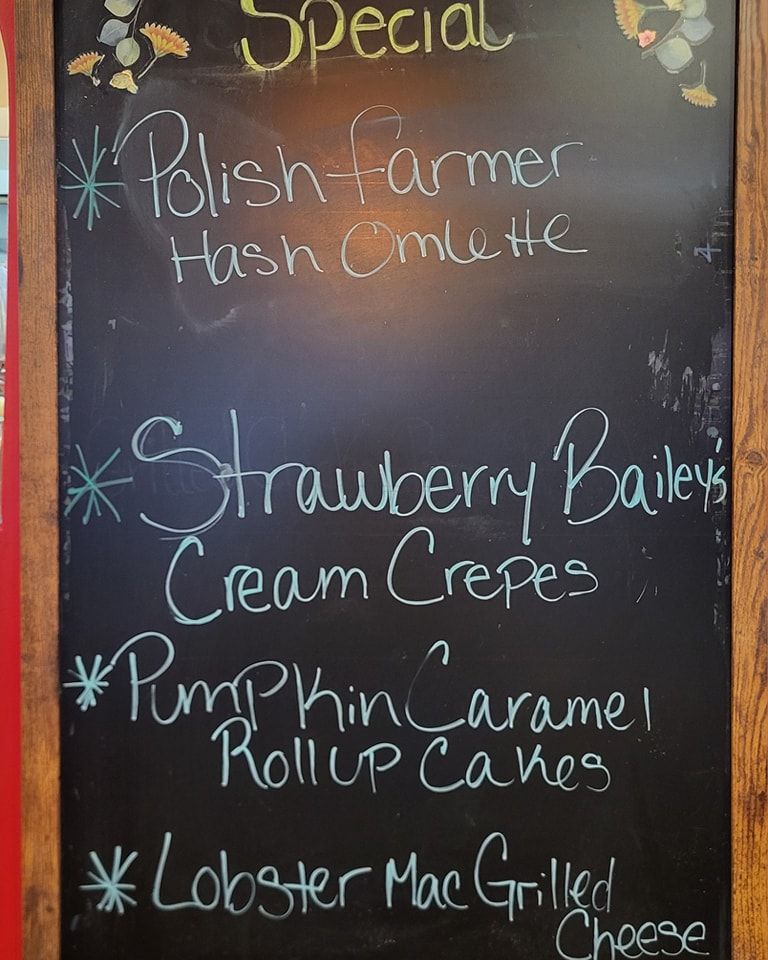 Special
* Polish farmer
Hash Omlette
* Strawberry Bailey's
Cream Crepes
* Pumpkin Caramel
Rollup Cakes
* Lobster Mac Grilled
Cheese